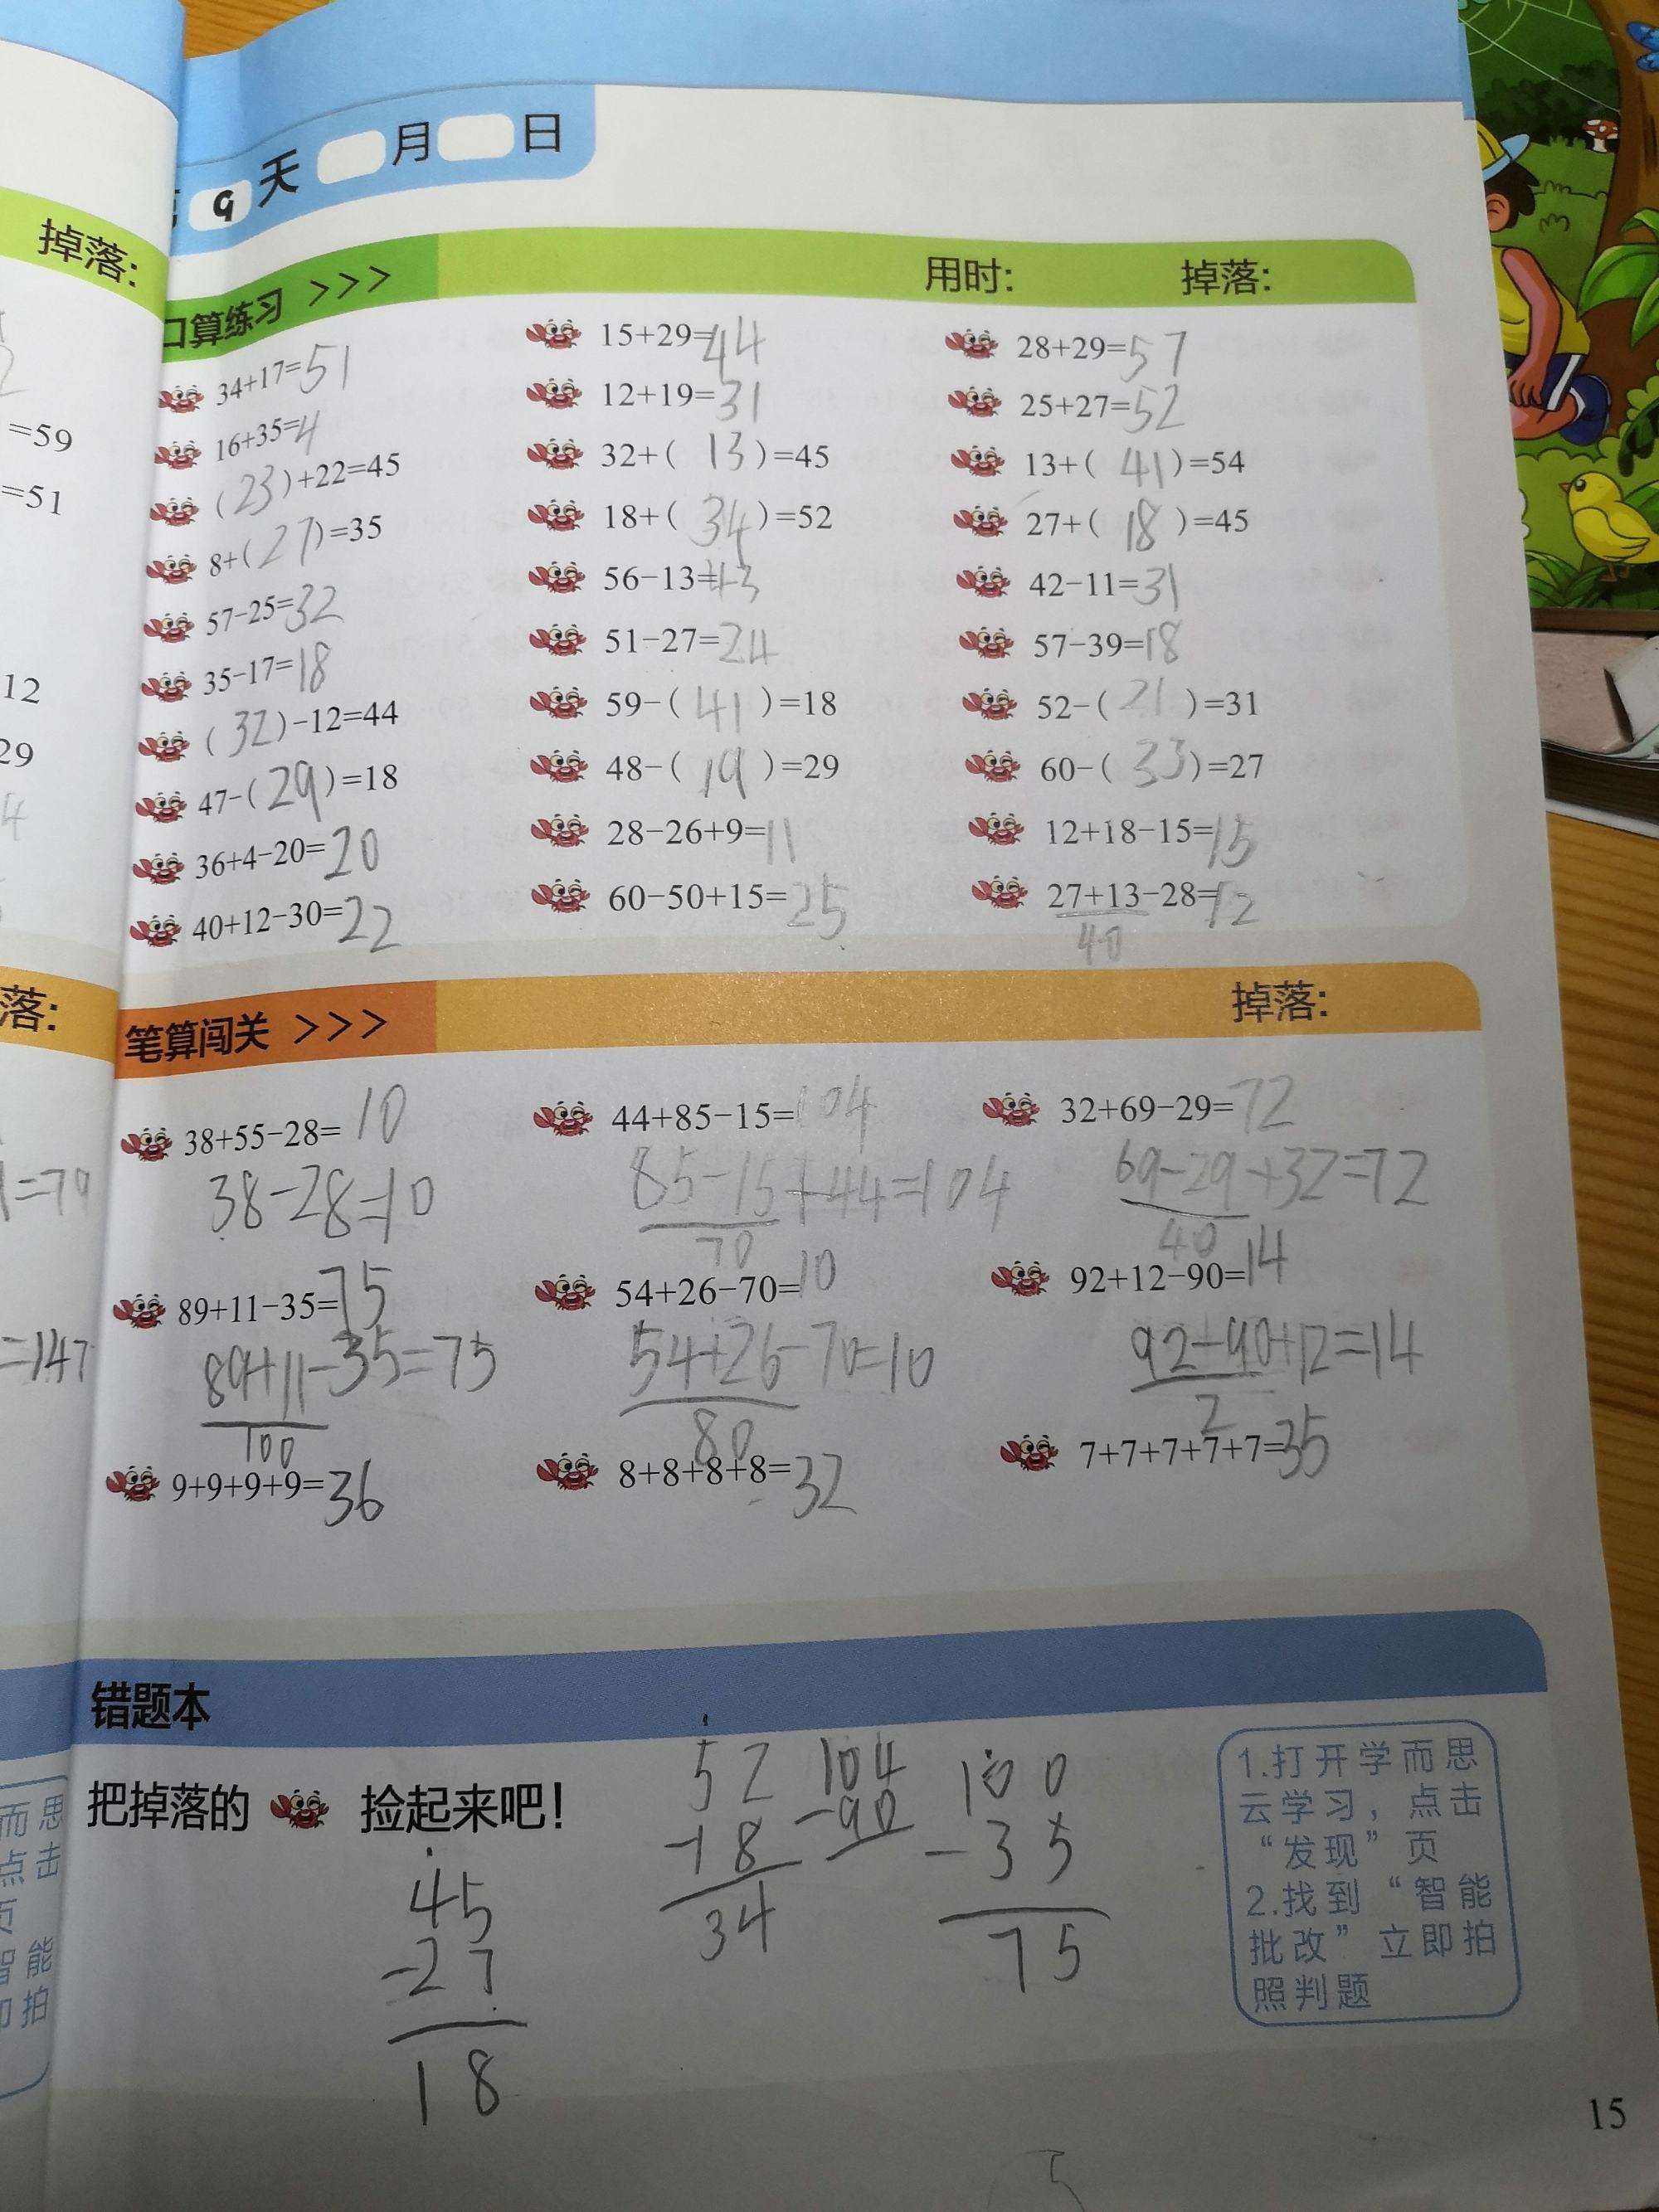 掉落:
=59
=51
12
29
4
落:
=79
=147
9天 月 日
口算练习 >>> 用时: 掉落:
34+17=51 15+29=44 28+29=57
16+35=4 12+19=31 25+27=52
(23)+22=45 32+(13)=45 13+(41)=54
8+(27)=35 18+(34)=52 27+(18)=45
57-25=32 56-13=43 42-11=31
35-17=18 51-27=24 57-39=18
(32)-12=44 59-(41)=18 52-(21)=31
47-(29)=18 48-(19)=29 60-(33)=27
36+4-20=20 28-26+9=11 12+18-15=15
40+12-30=22 60-50+15=25 27+13-28=12
40
笔算闯关 >>> 掉落:
38+55-28=10 44+85-15=104 32+69-29=72
38-28=10 85-15+44=104 69-29+32=72
70 40
89+11-35=75 54+26-70=10 92+12-90=14
89+11-35=75 54+26-70=10 92-90+12=14
100 80 2
9+9+9+9=36 8+8+8+8=32 7+7+7+7+7=35
错题本
把掉落的 捡起来吧!
45
-27
18
52
-18
34
104
-90
100
-35
75
1.打开学而思
云学习，点击
“发现”页
2.找到“智能
批改”立即拍
照判题
15